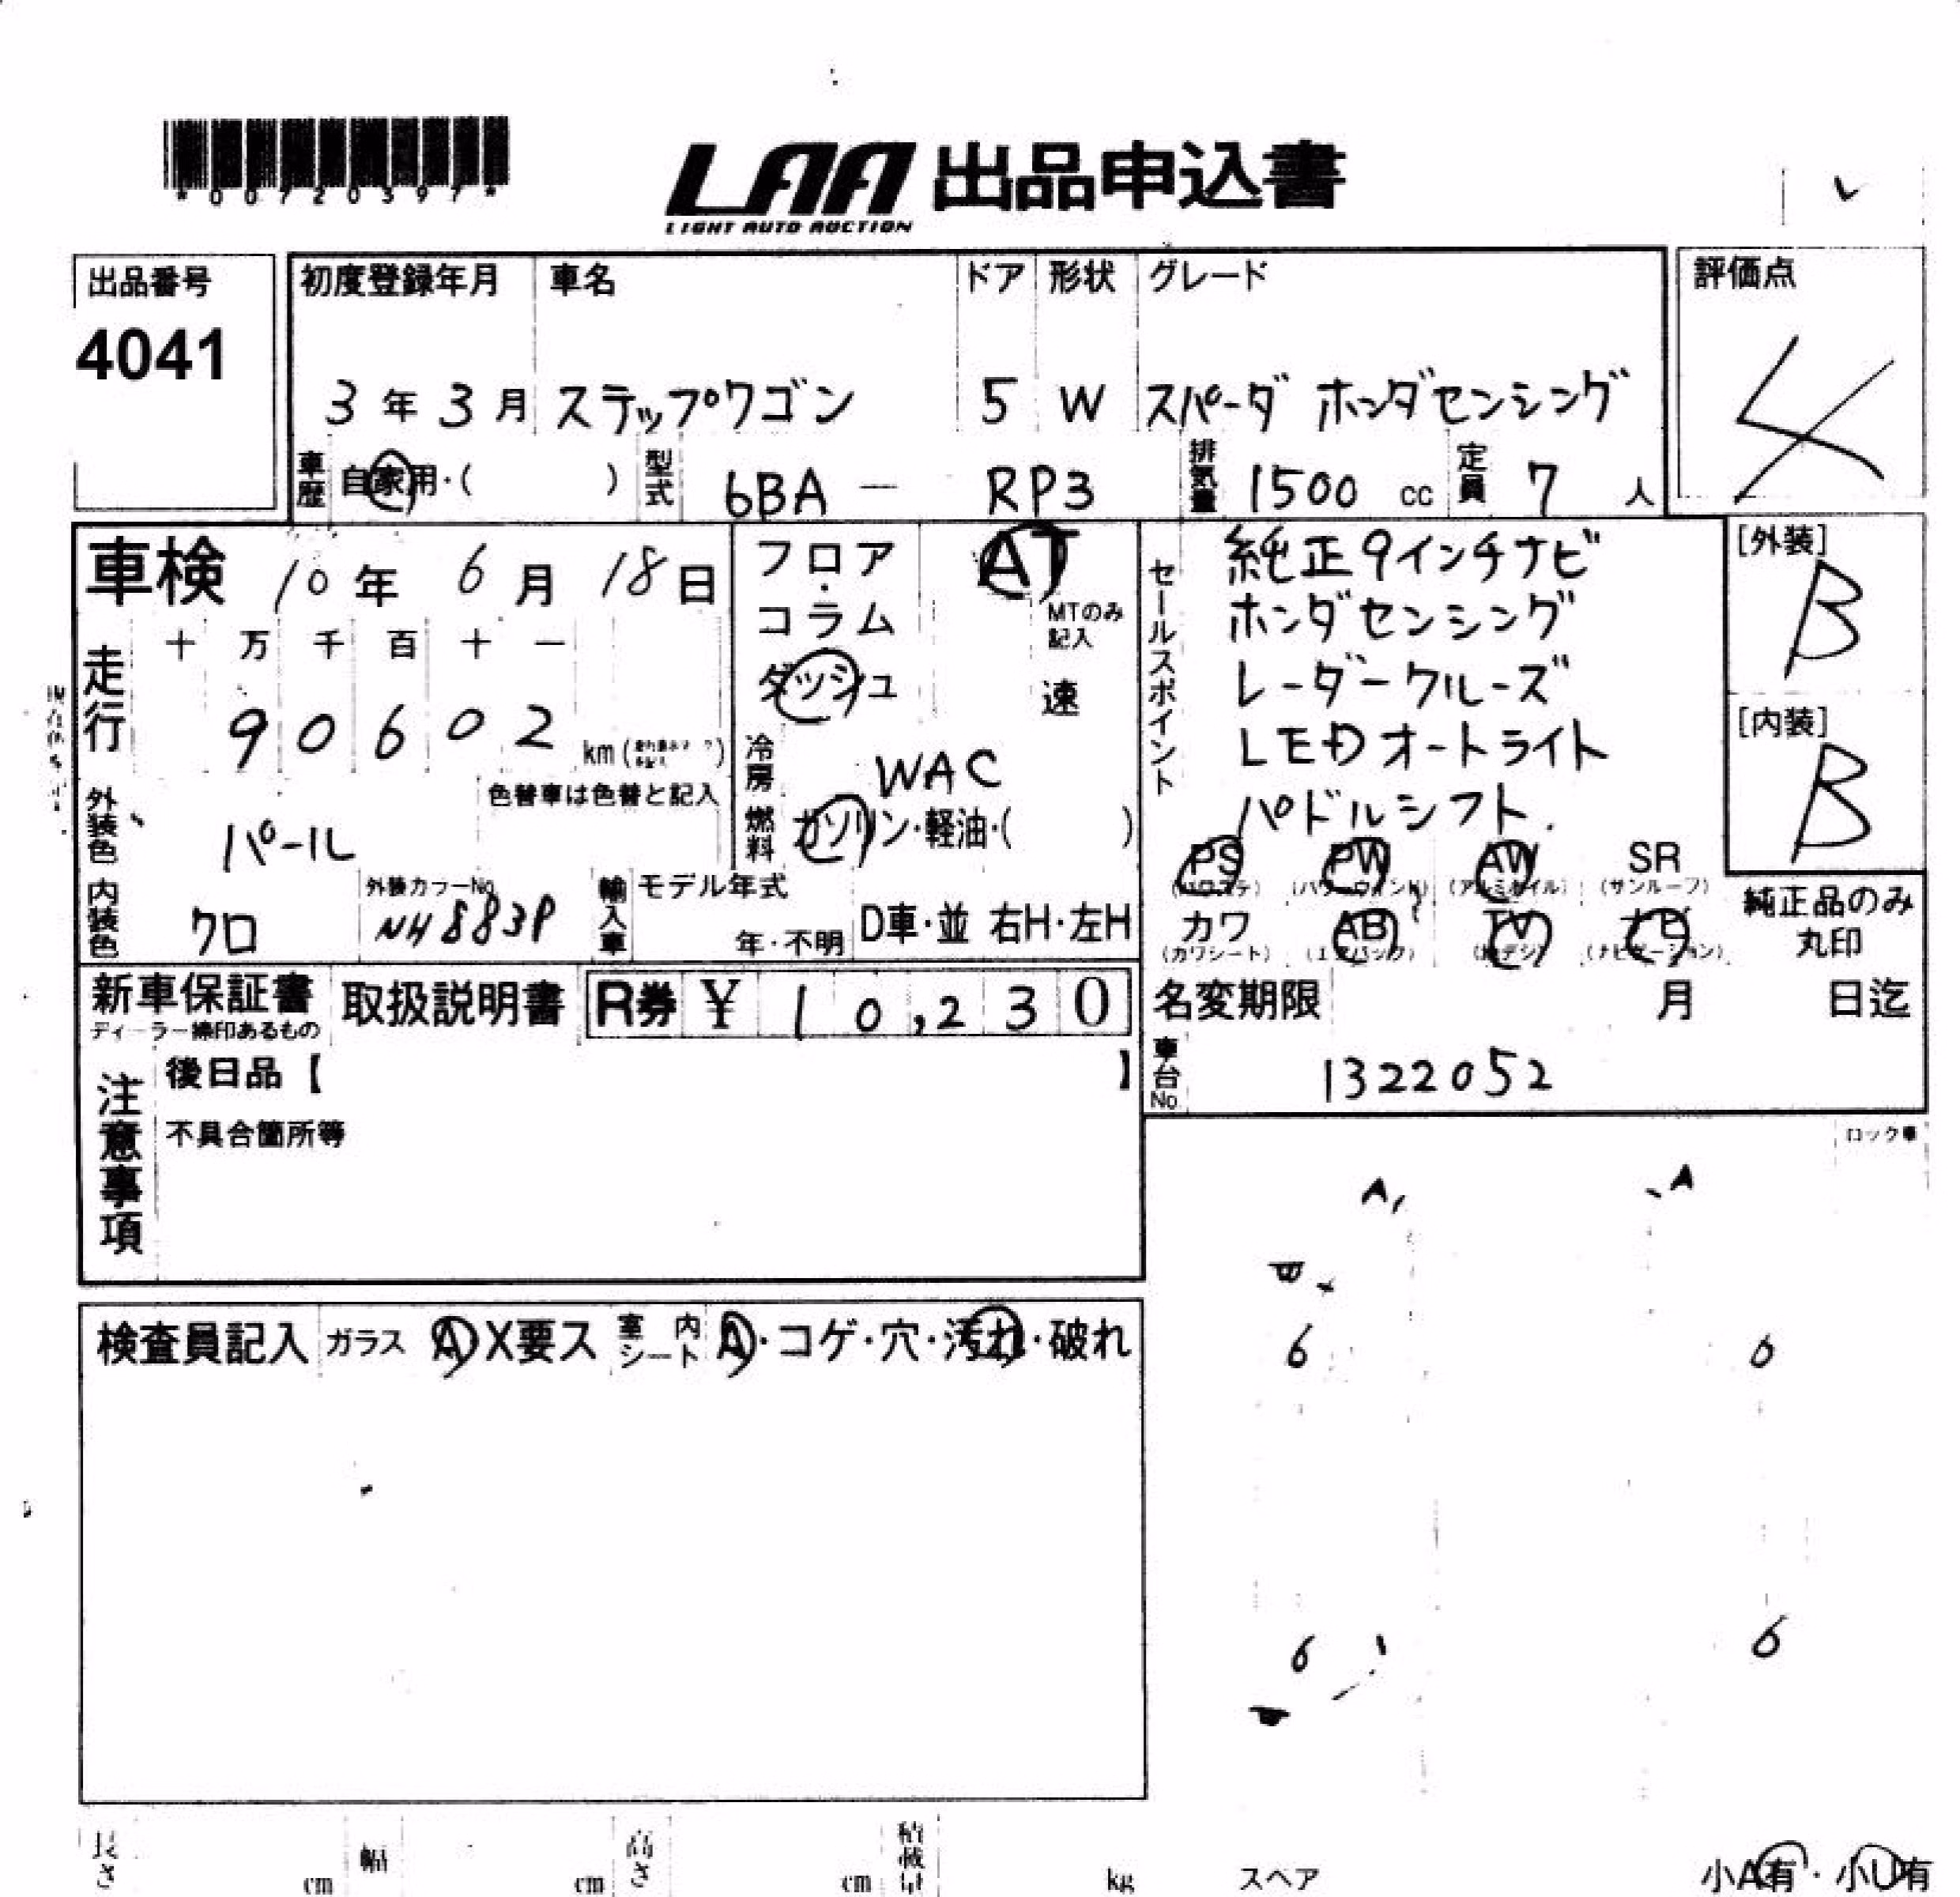 *00720397*
LAA 出品申込書
LIGHT AUTO AUCTION
出品番号
4041
初度登録年月 車名 ドア 形状 グレード
3年3月 ステップワゴン 5 W スパーダ ホンダセンシング
評価点
4
車歴 自家用・( ) 型式 6BA - RP3 排気量 1500 cc 定員 7 人
車検 10年 6月 18日
走行 十 万 千 百 十 一
90602 km
外装色 パール 色替車は色替と記入
内装色 クロ 外装カラーNo. NH883P
輸入車 モデル年式 年・不明 D車・並 右H・左H
フロア・コラム
ダッシュ
AT
MTのみ記入
速
冷房 WAC
燃料 ガソリン・軽油・( )
セールスポイント
純正9インチナビ
ホンダセンシング
レーダークルーズ
LEDオートライト
パドルシフト
PS PW AW SR
(パワステ) (パワーウィンド) (アルミホイル) (サンルーフ)
カワ AB TV ナビ
(カワシート) (エアバック) (地デジ) (ナビゲーション)
[外装]
B
[内装]
B
純正品のみ
丸印
新車保証書 取扱説明書 R券 ¥ 10,230
ディーラー捺印あるもの
名変期限 月 日迄
車台No. 1322052
注意事項
後日品【 】
不具合箇所等
ロック車
A A
W
6 6
6 6
検査員記入 ガラス A・X要ス 室内シート A・コゲ・穴・汚れ・破れ
長さ cm 幅 cm 高さ cm 積載量 kg スペア 小A有・小U有